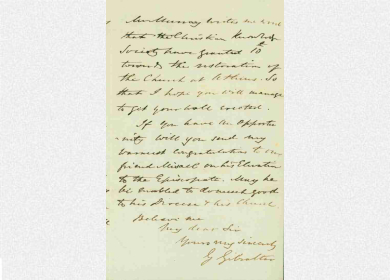 Mr Murray writes me word
that the Christian Knowledge
Society have granted 10
towards the restoration of
the Church at Athens. So
that I hope you will manage
to get your wall erected.
If you have an opportu
nity will you send my
warmest congratulations to our
friend on his Elevation
to the Episcopate. May he
be enabled to do much good
to his Diocese & his Church
Believe me
My dear Sir
Yours very sincerely
Gibraltar